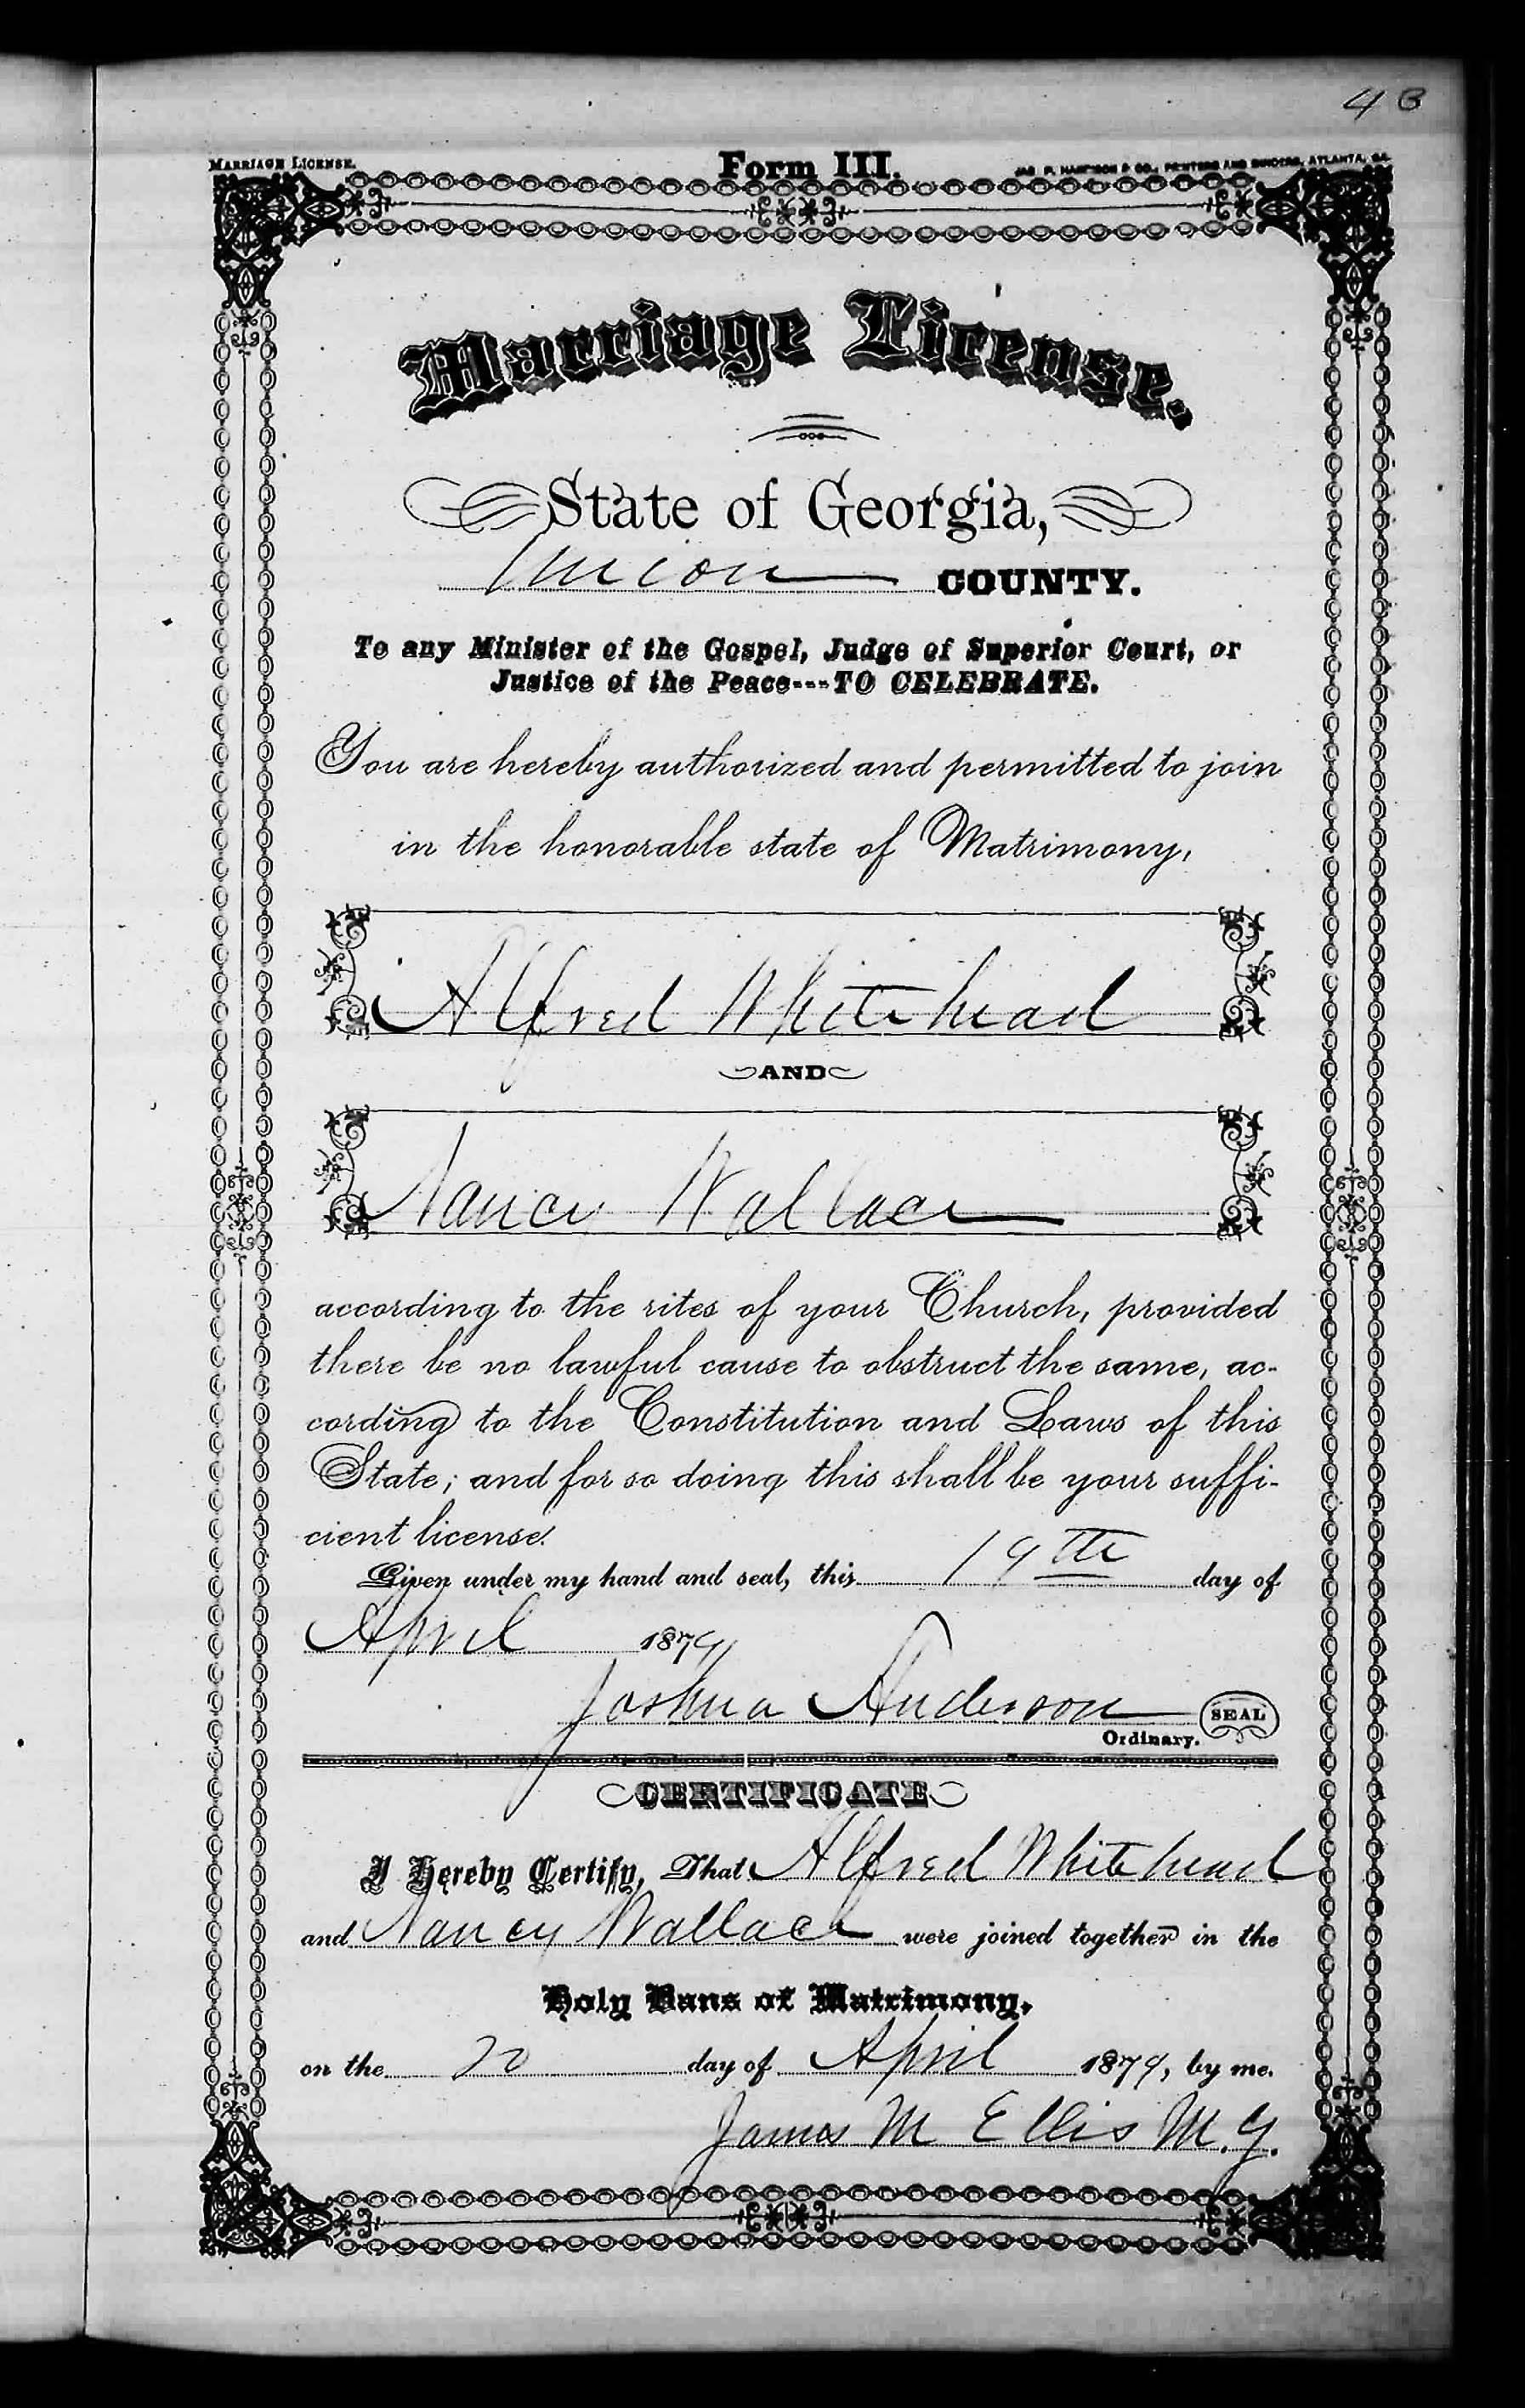 43
MARRIAGE LICENSE.
Form III.
JAS. P. HARRISON & CO., PRINTERS AND BINDERS, ATLANTA, GA.
Marriage License.
State of Georgia,
Union COUNTY.
To any Minister of the Gospel, Judge of Superior Court, or
Justice of the Peace---TO CELEBRATE.
You are hereby authorized and permitted to join
in the honorable state of Matrimony,
Alfred Whitehead
AND
Nancy Wallace
according to the rites of your Church, provided
there be no lawful cause to obstruct the same, ac-
cording to the Constitution and Laws of this
State; and for so doing this shall be your suffi-
cient license.
Given under my hand and seal, this 19th day of
April 1879
Joshua Anderson SEAL
Ordinary.
CERTIFICATE
I Hereby Certify, That Alfred Whitehead
and Nancy Wallace were joined together in the
Holy Bans of Matrimony.
on the 20 day of April 1879, by me.
James M Ellis M.G.